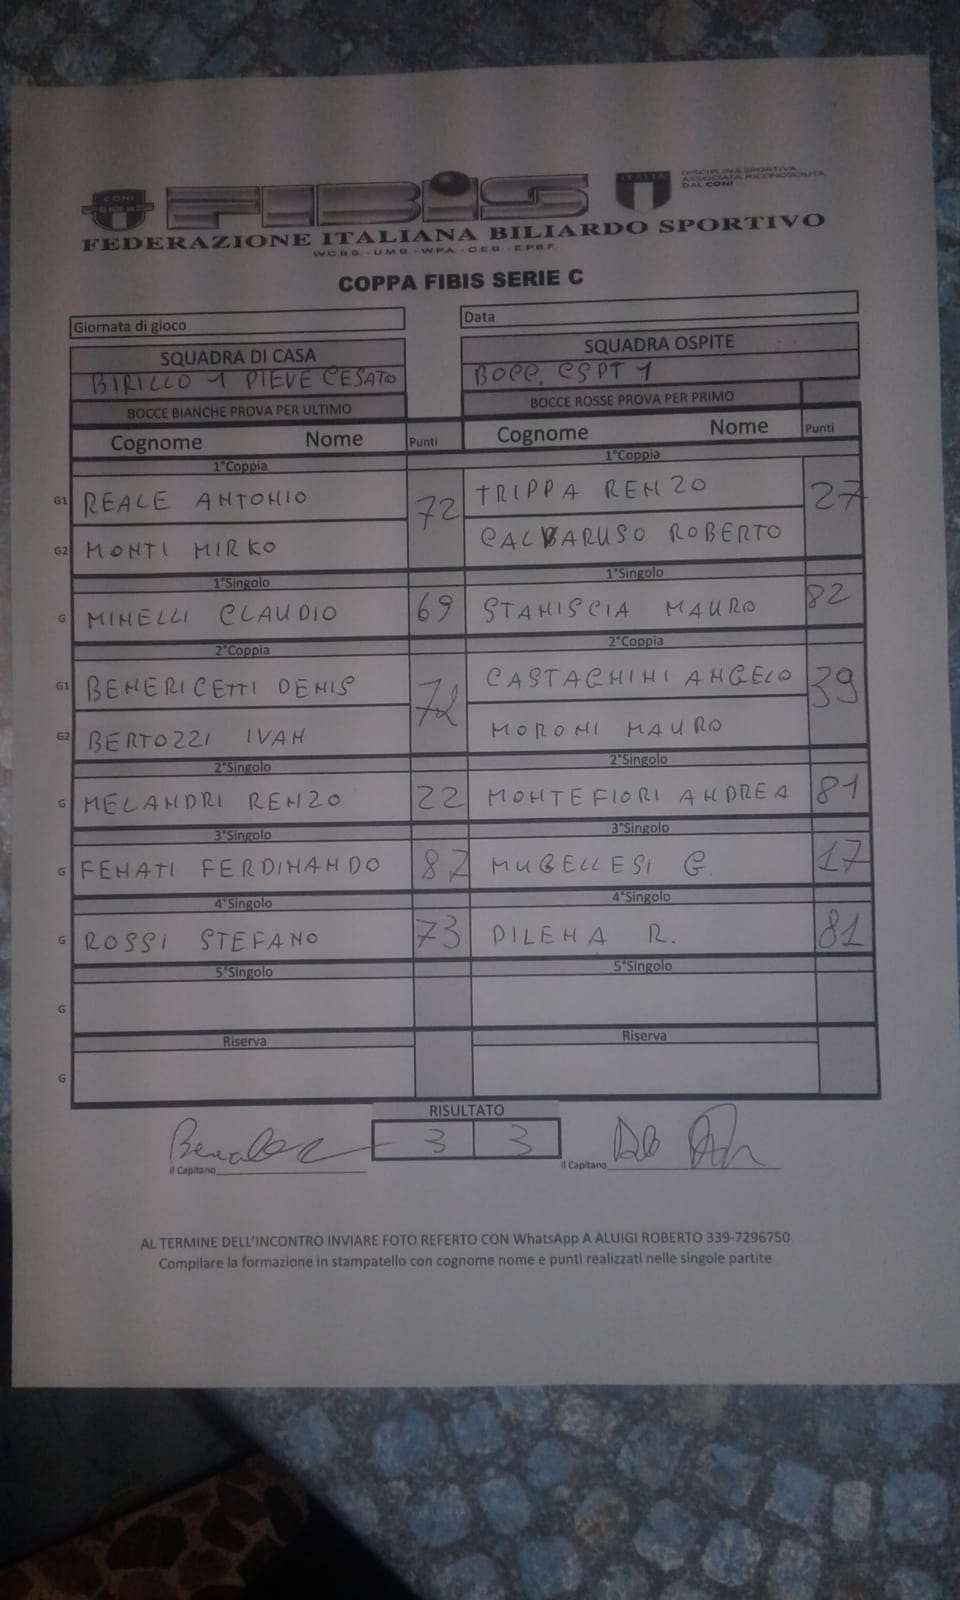 CONI
FIBIS
ITALIA
DISCIPLINA SPORTIVA
ASSOCIATA RICONOSCIUTA
DAL CONI
FEDERAZIONE ITALIANA BILIARDO SPORTIVO
W.C.B.S. - U.M.B. - W.P.A. - C.E.B. - E.P.B.F.
COPPA FIBIS SERIE C
Giornata di gioco Data
SQUADRA DI CASA SQUADRA OSPITE
BIRILLO 1 PIEVE CESATO BOCC. CSPT 1
BOCCE BIANCHE PROVA PER ULTIMO BOCCE ROSSE PROVA PER PRIMO
Cognome Nome Punti Cognome Nome Punti
1°Coppia 1°Coppia
G1 REALE ANTONIO 72 TRIPPA RENZO 27
G2 MONTI MIRKO CALBARUSO ROBERTO
1°Singolo 1°Singolo
G MINELLI CLAUDIO 69 STANISCIA MAURO 82
2°Coppia 2°Coppia
G1 BENERICETTI DENIS 72 CASTAGNINI ANGELO 39
G2 BERTOZZI IVAN MORONI MAURO
2°Singolo 2°Singolo
G MELANDRI RENZO 22 MONTEFIORI ANDREA 81
3°Singolo 3°Singolo
G FENATI FERDINANDO 87 MUGELLESI G. 17
4°Singolo 4°Singolo
G ROSSI STEFANO 73 DILENA R. 81
5°Singolo 5°Singolo
G
Riserva Riserva
G
RISULTATO
3 3
il Capitano il Capitano
AL TERMINE DELL'INCONTRO INVIARE FOTO REFERTO CON WhatsApp A ALUIGI ROBERTO 339-7296750
Compilare la formazione in stampatello con cognome nome e punti realizzati nelle singole partite